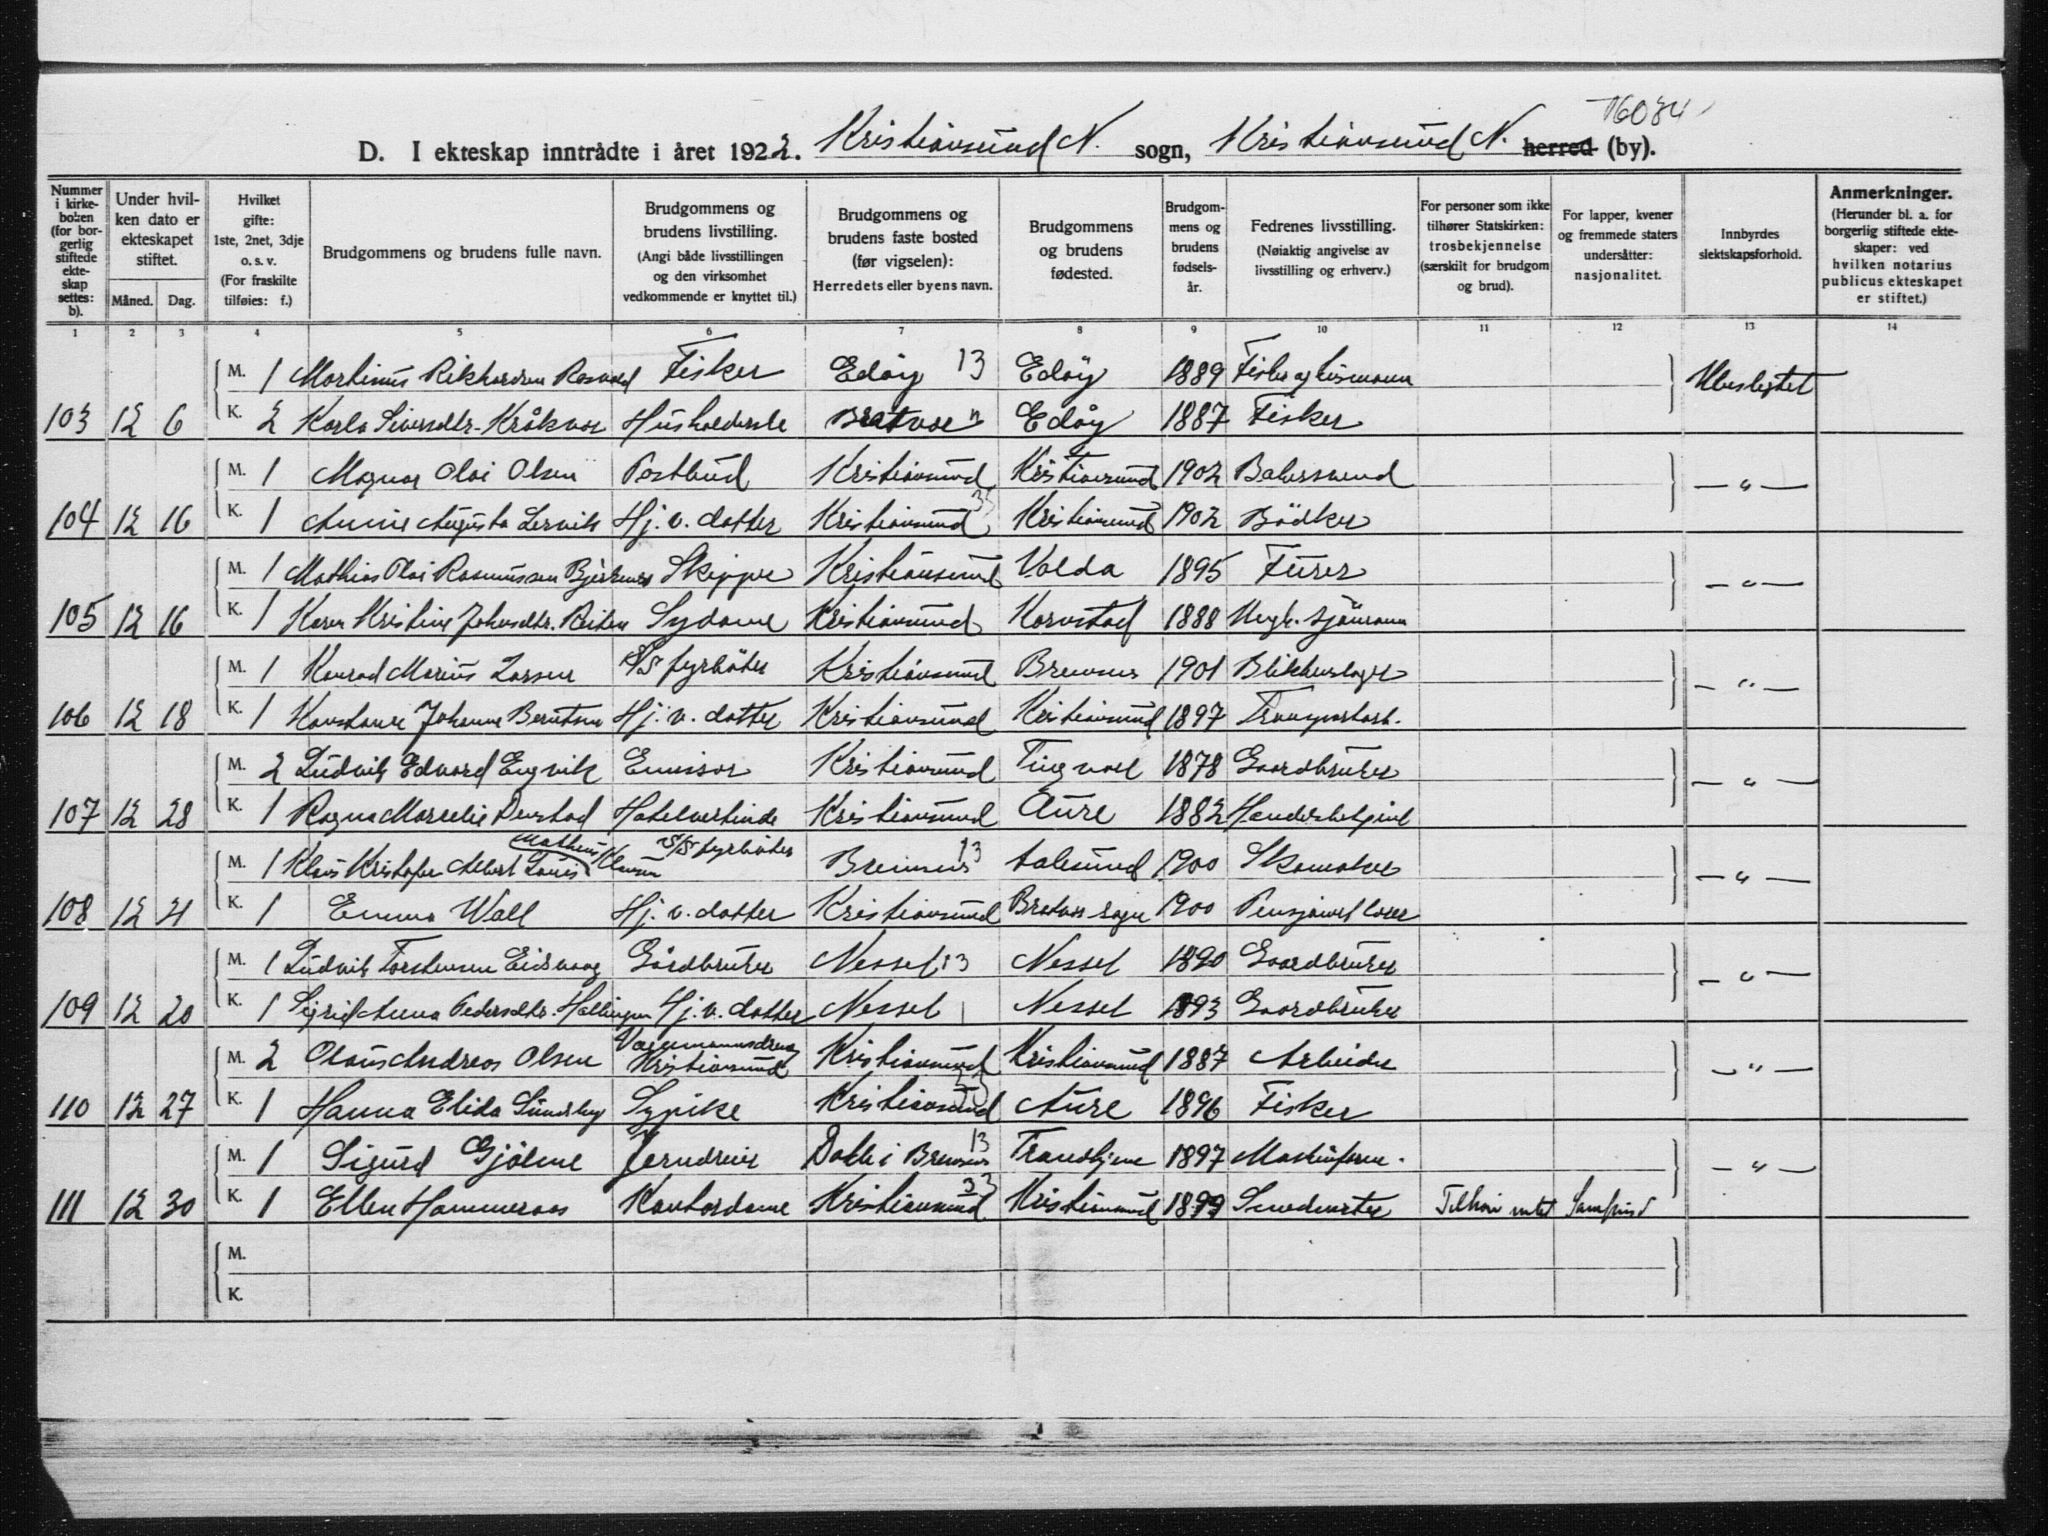 T6034
D. I ekteskap inntrådte i året 1922. Kristiansund N. sogn, Kristiansund N. herred (by).
Nummer i kirkeboken (for borgerlig stiftede ekteskap settes: b).
Under hvilken dato er ekteskapet stiftet.
Måned. Dag.
Hvilket gifte: 1ste, 2net, 3dje o. s. v. (For fraskilte tilføies: f.)
Brudgommens og brudens fulle navn.
Brudgommens og brudens livstilling. (Angi både livsstillingen og den virksomhet vedkommende er knyttet til.)
Brudgommens og brudens faste bosted (før vigselen): Herredets eller byens navn.
Brudgommens og brudens fødested.
Brudgommens og brudens fødselsår.
Fedrenes livsstilling. (Nøiaktig angivelse av livsstilling og erhverv.)
For personer som ikke tilhører Statskirken: trosbekjennelse (særskilt for brudgom og brud).
For lapper, kvener og fremmede staters undersåtter: nasjonalitet.
Innbyrdes slektskapsforhold.
Anmerkninger. (Herunder bl. a. for borgerlig stiftede ekteskaper: ved hvilken notarius publicus ekteskapet er stiftet.)
1 2 3 4 5 6 7 8 9 10 11 12 13 14
M. 1 Martinus Rikhardsen Fisker Edøy 13 Edøy 1889 Fisker og Ubeslegtet
103 12 6 K. 2 Karla Sivertsdtr. Kråkvær Edøy 1887 Fisker
M. 1 Magnus Olai Olsen Postbud Kristiansund Kristiansund 1902 – " –
104 12 16 K. 1 Annie Augusta Lervik Hj. v. datter Kristiansund 33 Kristiansund 1902 Bödker
M. 1 Mathias Olai Rasmussen Skipper Kristiansund Volda 1895 Fürer – " –
105 12 16 K. 1 Karen Kristine Johnsdtr. Sydame Kristiansund Kornstad 1888 Ungk. sjömann
M. 1 Konrad Marius Larsen S/S fyrböter Kristiansund Bremsnes 1901 Blikkenslager – " –
106 12 18 K. 1 Konstance Johanne Berntsen Hj. v. datter Kristiansund Kristiansund 1897 Transportarb.
M. 2 Ludvik Edvard Engvik Emissær Kristiansund Tingvoll 1878 Gaardbruker – " –
107 12 28 K. 1 Ragna Marselie Hotelvertinde Kristiansund Aure 1882
Matheus
M. 1 Klaus Kristofer Albert Louis Klausen S/S fyrböter Bremsnes 13 Aalesund 1900 Skomaker – " –
108 12 21 K. 1 Emma Wall Hj. v. datter Kristiansund Brattvær sogn 1900
M. 1 Ludvik Torstensen Eidsvaag Gårdbruker Nesset 13 Nesset 1890 Gaardbruker – " –
109 12 20 K. 1 Sigrid Anna Pedersdtr. Hj. v. datter Nesset Nesset 1893 Gaardbruker
M. 2 Olaus Andreas Olsen Kristiansund Kristiansund Kristiansund 1887 Arbeider – " –
110 12 27 K. 1 Hanna Elida Sundsby Sypike Kristiansund 33 Aure 1896 Fisker
M. 1 Sigurd Gjölme Jerndreier Dale i Bremsnes 13 Trondhjem 1897 – " –
111 12 30 K. 1 Ellen Hammeraas Kontordame Kristiansund 33 Kristiansund 1899 Smedmester Tilhör intet Samfund
M.
K.